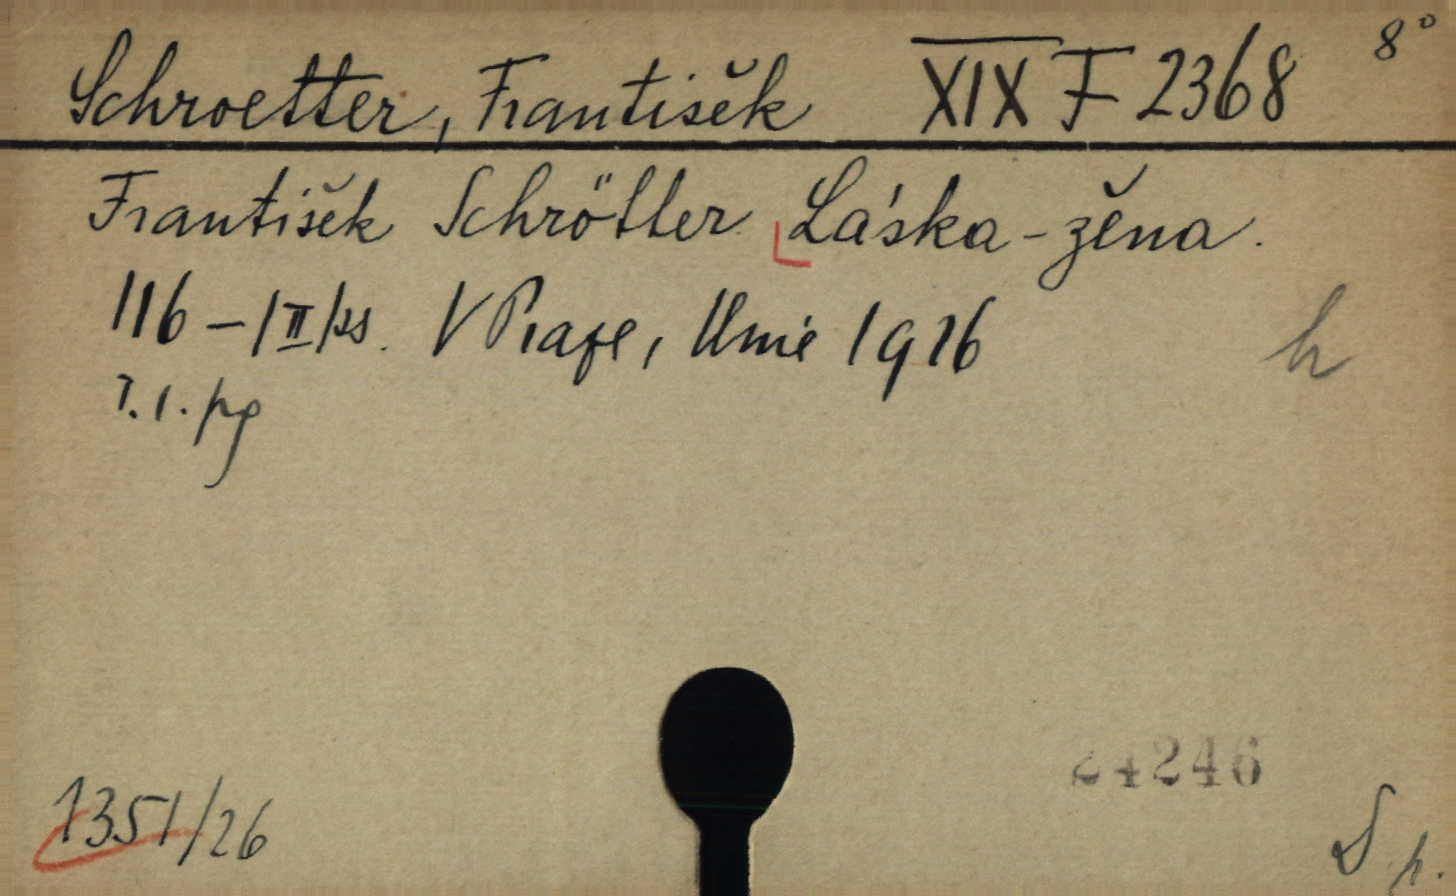 Schroetter, František XIX F 2368 8°
František Schrötter Láska-žena.
116 – /II/ ss. V Praze, Unie 1916
T. l. pg
h
24246
1351/26
S p.